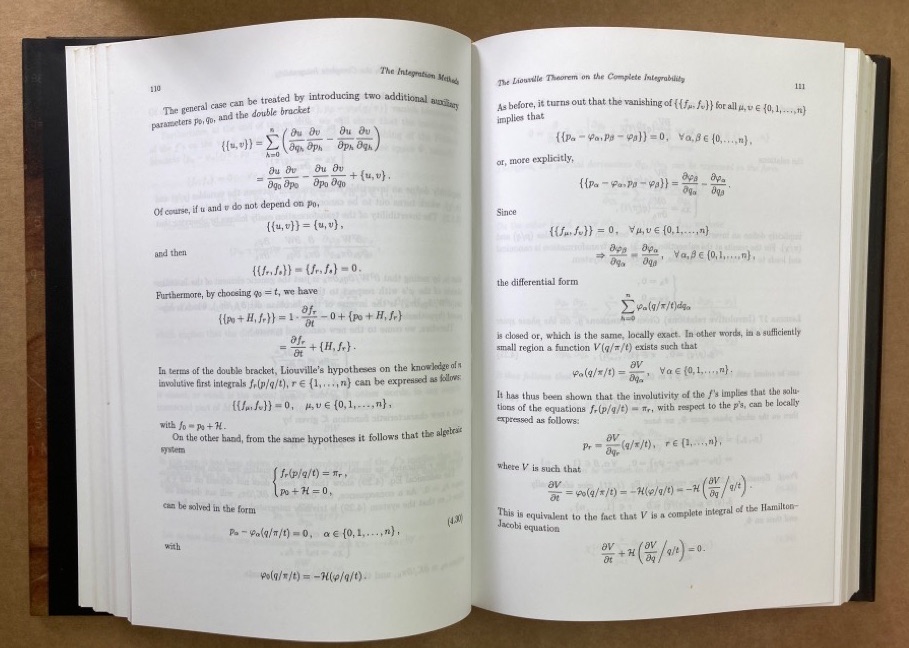 110
The Integration Methods
The general case can be treated by introducing two additional auxiliary
parameters p₀, q₀, and the double bracket
{{u, v}} = ∑_{h=0}^{n} (∂u/∂q_h ∂v/∂p_h − ∂u/∂p_h ∂v/∂q_h)
= ∂u/∂q₀ ∂v/∂p₀ − ∂u/∂p₀ ∂v/∂q₀ + {u, v} .
Of course, if u and v do not depend on p₀,
{{u, v}} = {u, v} ,
and then
{{f_r, f_s}} = {f_r, f_s} = 0 .
Furthermore, by choosing q₀ = t, we have
{{p₀ + H, f_r}} = 1 · ∂f_r/∂t − 0 + {p₀ + H, f_r}
= ∂f_r/∂t + {H, f_r} .
In terms of the double bracket, Liouville's hypotheses on the knowledge of n
involutive first integrals f_r(p/q/t), r ∈ {1, . . . , n} can be expressed as follows:
{{f_μ, f_υ}} = 0 , μ, υ ∈ {0, 1, . . . , n} ,
with f₀ = p₀ + H.
On the other hand, from the same hypotheses it follows that the algebraic
system
{ f_r(p/q/t) = π_r ,
p₀ + H = 0 ,
can be solved in the form
p_α − φ_α(q/π/t) = 0 , α ∈ {0, 1, . . . , n} , (4.30)
with
φ₀(q/π/t) = −H(φ/q/t) .
The Liouville Theorem on the Complete Integrability
111
As before, it turns out that the vanishing of {{f_μ, f_υ}} for all μ, υ ∈ {0, 1, . . . , n}
implies that
{{p_α − φ_α, p_β − φ_β}} = 0 , ∀α, β ∈ {0, . . . , n} ,
or, more explicitly,
{{p_α − φ_α, p_β − φ_β}} = ∂φ_β/∂q_α − ∂φ_α/∂q_β .
Since
{{f_μ, f_υ}} = 0 , ∀ μ, υ ∈ {0, 1, . . . , n}
⇒ ∂φ_β/∂q_α = ∂φ_α/∂q_β , ∀ α, β ∈ {0, 1, . . . , n} ,
the differential form
∑_{h=0}^{n} φ_α(q/π/t)dq_α
is closed or, which is the same, locally exact. In other words, in a sufficiently
small region a function V(q/π/t) exists such that
φ_α(q/π/t) = ∂V/∂q_α , ∀ α ∈ {0, 1, . . . , n} .
It has thus been shown that the involutivity of the f's implies that the solu-
tions of the equations f_r(p/q/t) = π_r, with respect to the p's, can be locally
expressed as follows:
p_r = ∂V/∂q_r (q/π/t) , r ∈ {1, . . . , n} ,
where V is such that
∂V/∂t = φ₀(q/π/t) = −H(φ/q/t) = −H (∂V/∂q / q/t) .
This is equivalent to the fact that V is a complete integral of the Hamilton-
Jacobi equation
∂V/∂t + H (∂V/∂q / q/t) = 0 .